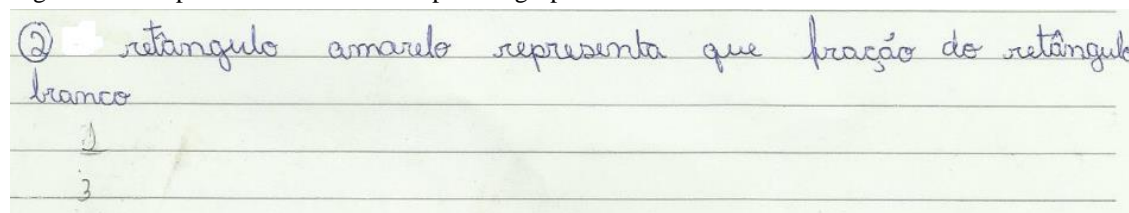 ② retângulo amarelo representa que fração do retângulo
branco
1
3